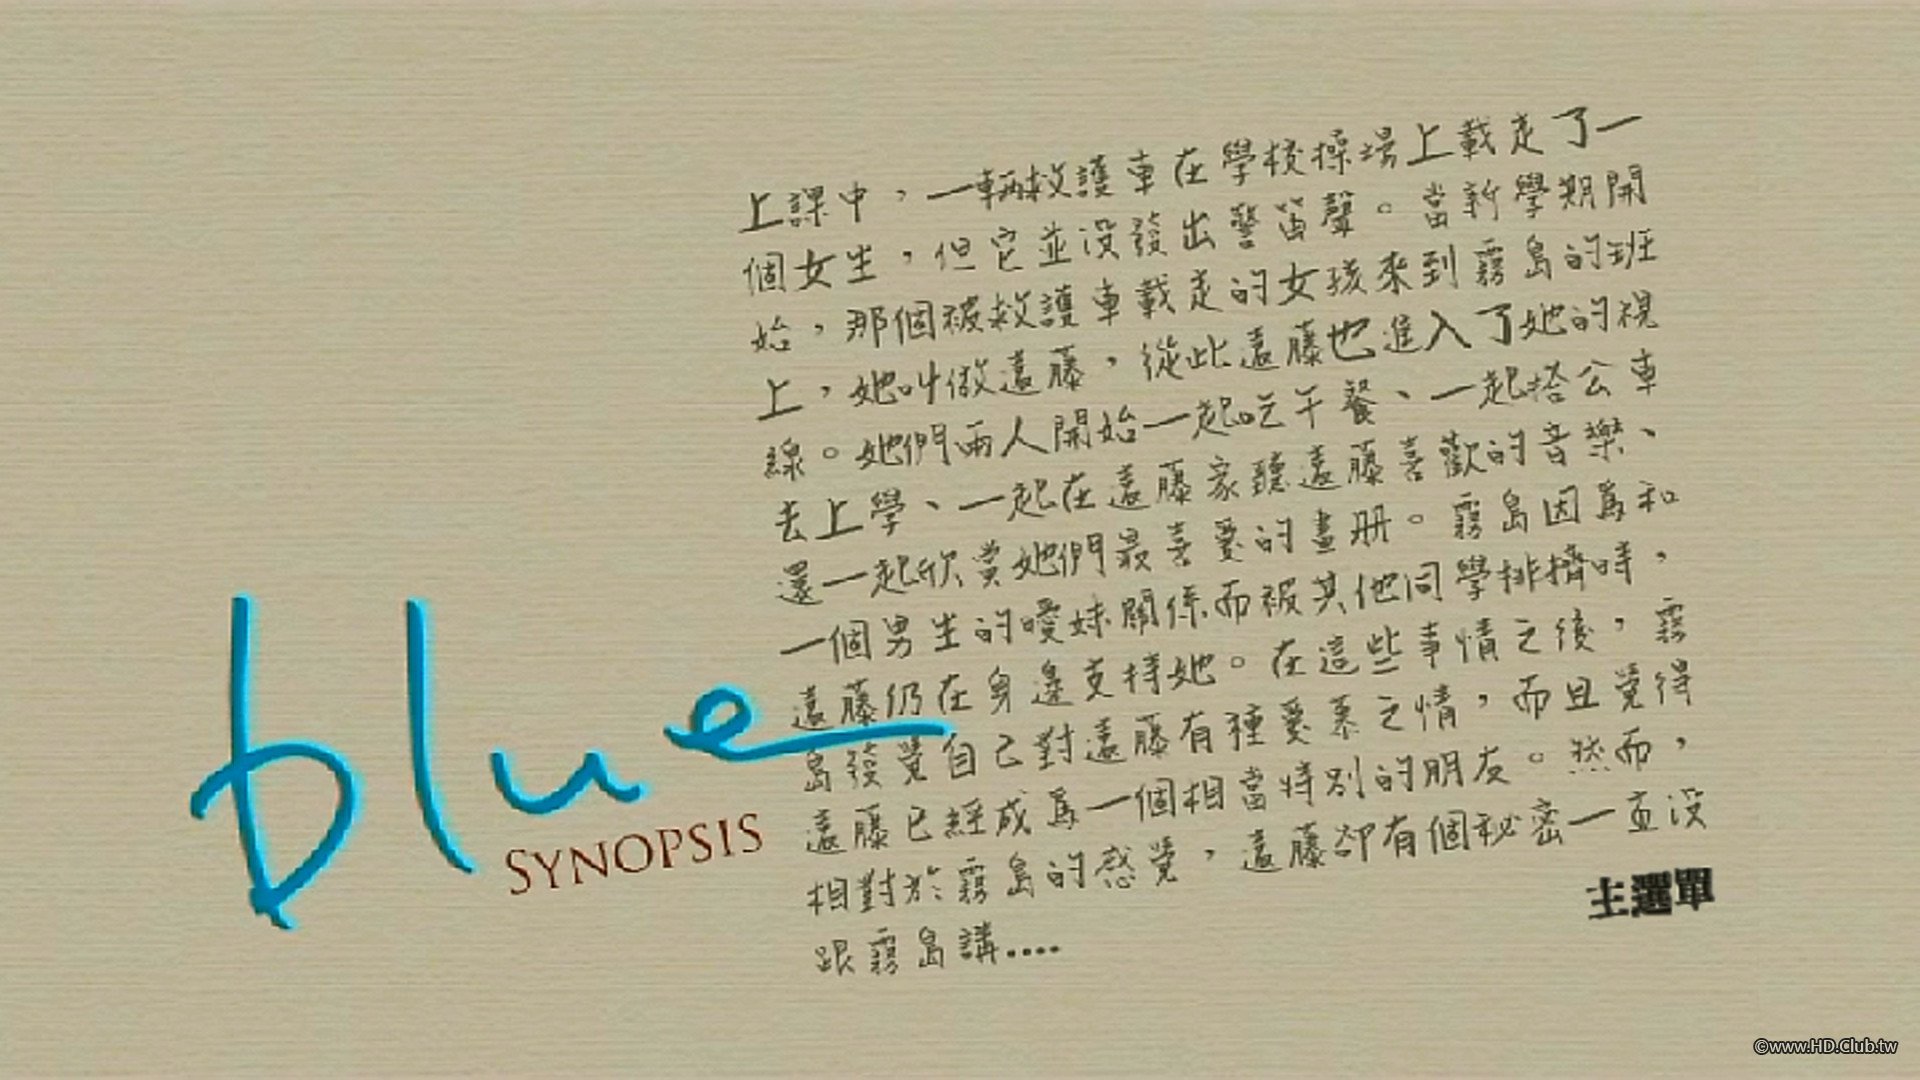 上課中，一輛救護車在學校操場上載走了一
個女生，但它並沒發出警笛聲。當新學期開
始，那個被救護車載走的女孩來到霧島的班
上，她叫做遠藤，從此遠藤也進入了她的視
線。她們兩人開始一起吃午餐、一起搭公車
去上學、一起在遠藤家聽遠藤喜歡的音樂、
還一起欣賞她們最喜愛的畫冊。霧島因為和
一個男生的曖妹關係而被其他同學排擠時，
遠藤仍在身邊支持她。在這些事情之後，霧
島發覺自己對遠藤有種愛慕之情，而且覺得
遠藤已經成為一個相當特別的朋友。然而，
相對於霧島的感覺，遠藤卻有個秘密一直沒
跟霧島講....
blue
SYNOPSIS
主選單
©www.HD.Club.tw